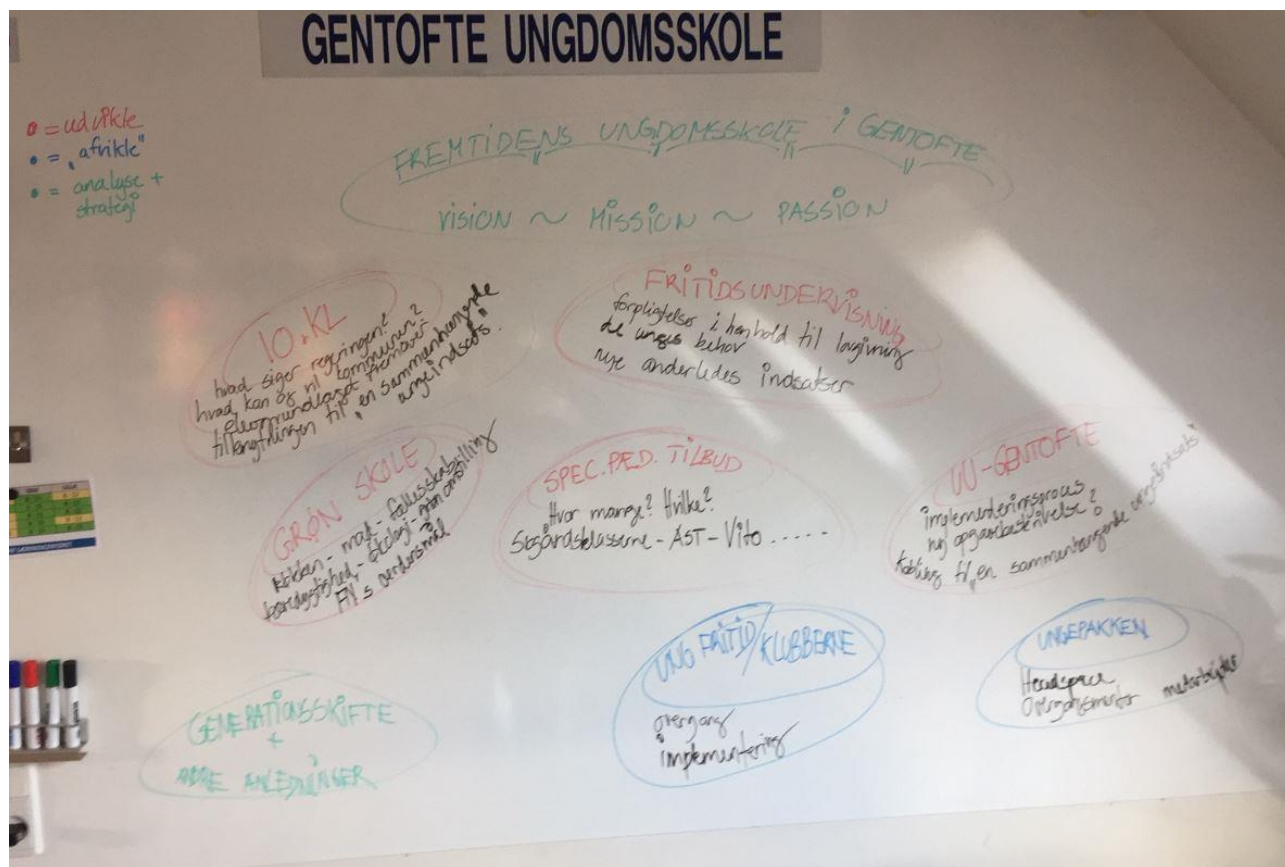 GENTOFTE UNGDOMSSKOLE
= udvikle
= "afvikle"
= analyse +
strategi
FREMTIDENS UNGDOMSSKOLE i GENTOFTE
VISION ~ MISSION ~ PASSION
10. KL
hvad siger regeringen?
hvad kan og vil kommunen?
elevgrundlaget fremover
til "en sammenhængende
ungeindsats".
FRITIDSUNDERVISNING
forpligtelser i henhold til lovgivning
de unges behov
nye anderledes indsatser
GRØN SKOLE
mad - fællesskabsspisning
bæredygtighed - økologi -
FN's verdensmål
SPEC. PÆD. TILBUD
Hvor mange? Hvilke?
Søgårdsklasserne - AST - Vito .....
UU-GENTOFTE
implementeringsproces
ny opgavebeskrivelse?
Kobling til "en sammenhængende ungeindsats"
UNG FRITID/KLUBBERNE
overgang
implementering
UNGEPAKKEN
Headspace
Overgangsmentor
GENERATIONSSKIFTE
+
ANDRE ANLEDNINGER